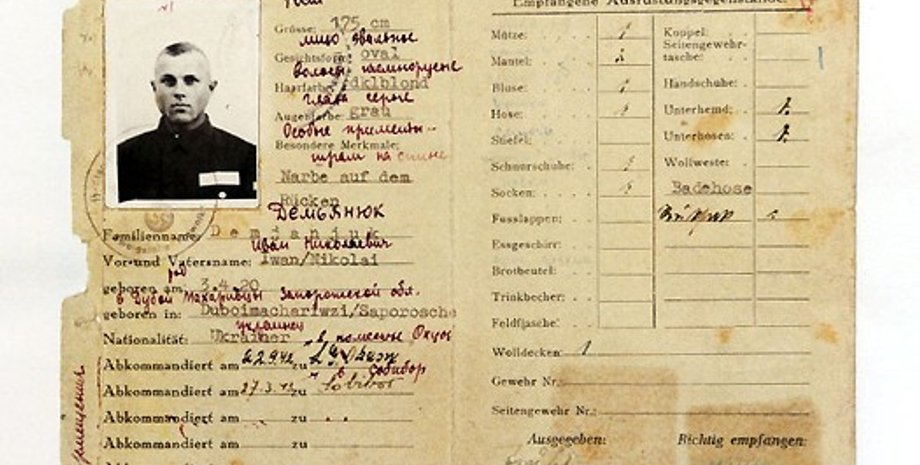 Grösse: 175 cm
лицо овальное
Gesichtsform: oval
волосы темнорусые
Haarfarbe: dklblond
глаза серые
Augenfarbe: grau
Особые приметы -
Besondere Merkmale:
шрам на спине
Narbe auf dem
Rücken
Демьянюк
Familienname: Demjanjuk
Иван Николаевич
Vor-und Vatersname: Iwan/Nikolai
род
geboren am: 3.4.20
в Дубой Махаривцы Запорожской обл.
geboren in: Duboimachariwzi/Saporosche
украинец
Nationalität: Ukrainer
в поместье Окцов
Abkommandiert am 22.9.42 zu L.G. Okzow
в Собибор
Abkommandiert am 27.3.43 zu Sobibor
Abkommandiert am zu
Abkommandiert am zu
Abkommandiert am zu
Empfangene Ausrüstungsgegenstände:
Mütze: 1
Mantel:
Bluse: 1
Hose: 1
Stiefel:
Schnürschuhe: 1
Socken:
Fusslappen:
Essgeschirr:
Brotbeutel:
Trinkbecher:
Feldflasche:
Wolldecken: 1
Gewehr Nr.:
Seitengewehr Nr.:
Koppel:
Seitengewehr-
tasche:
Handschuhe:
Unterhemd: 1.
Unterhosen: 1.
Wollweste:
Badehose
Ausgegeben: Richtig empfangen: